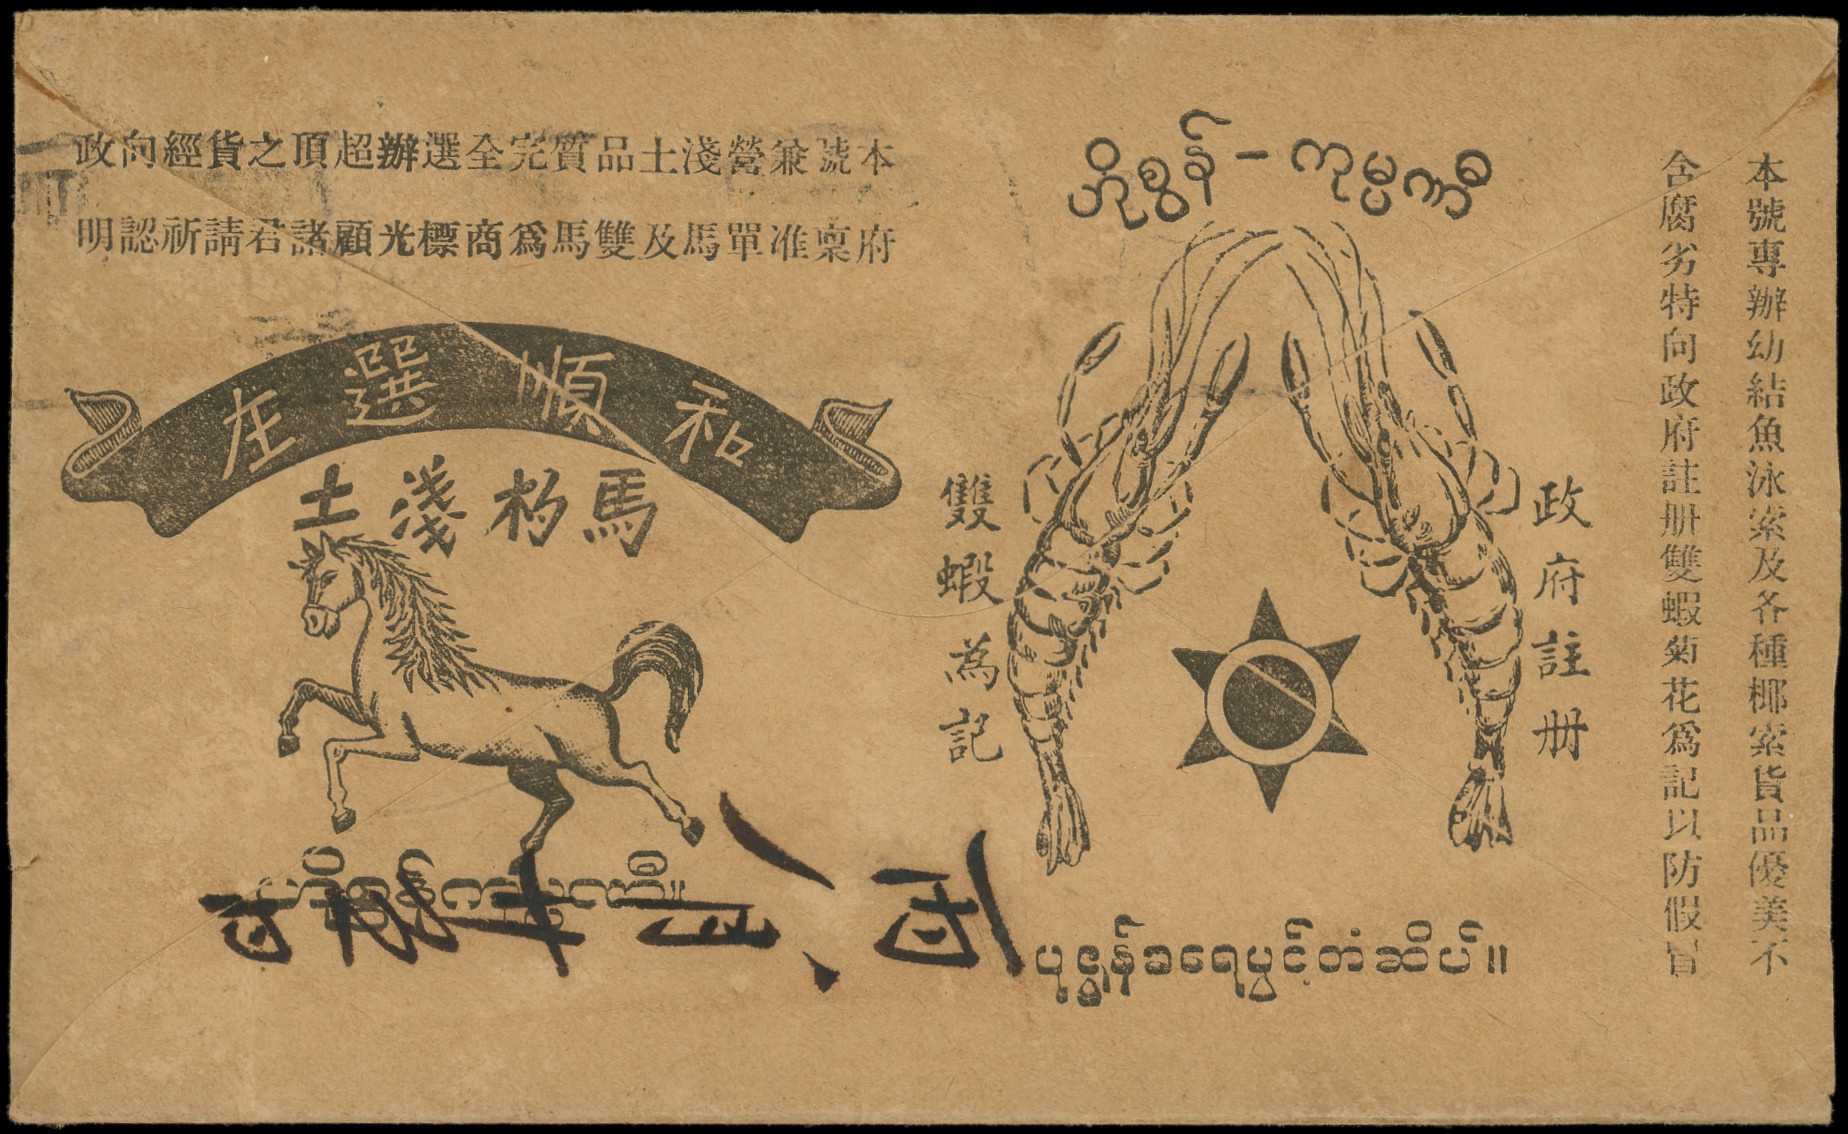 本號兼營淺土品質完全選辦超頂之貨經向政
府稟准單馬及雙馬爲商標光顧諸君請祈認明
和順選庄
馬杮淺土
ဟိုစွန်-ကုမ္ပဏီ
本號專辦幼結魚泳索及各種椰索貨品優美不
含腐劣特向政府註册雙蝦菊花爲記以防假冒
政府註册
雙蝦為記
ပုဇွန်ခရေပွင့်တံဆိပ်။